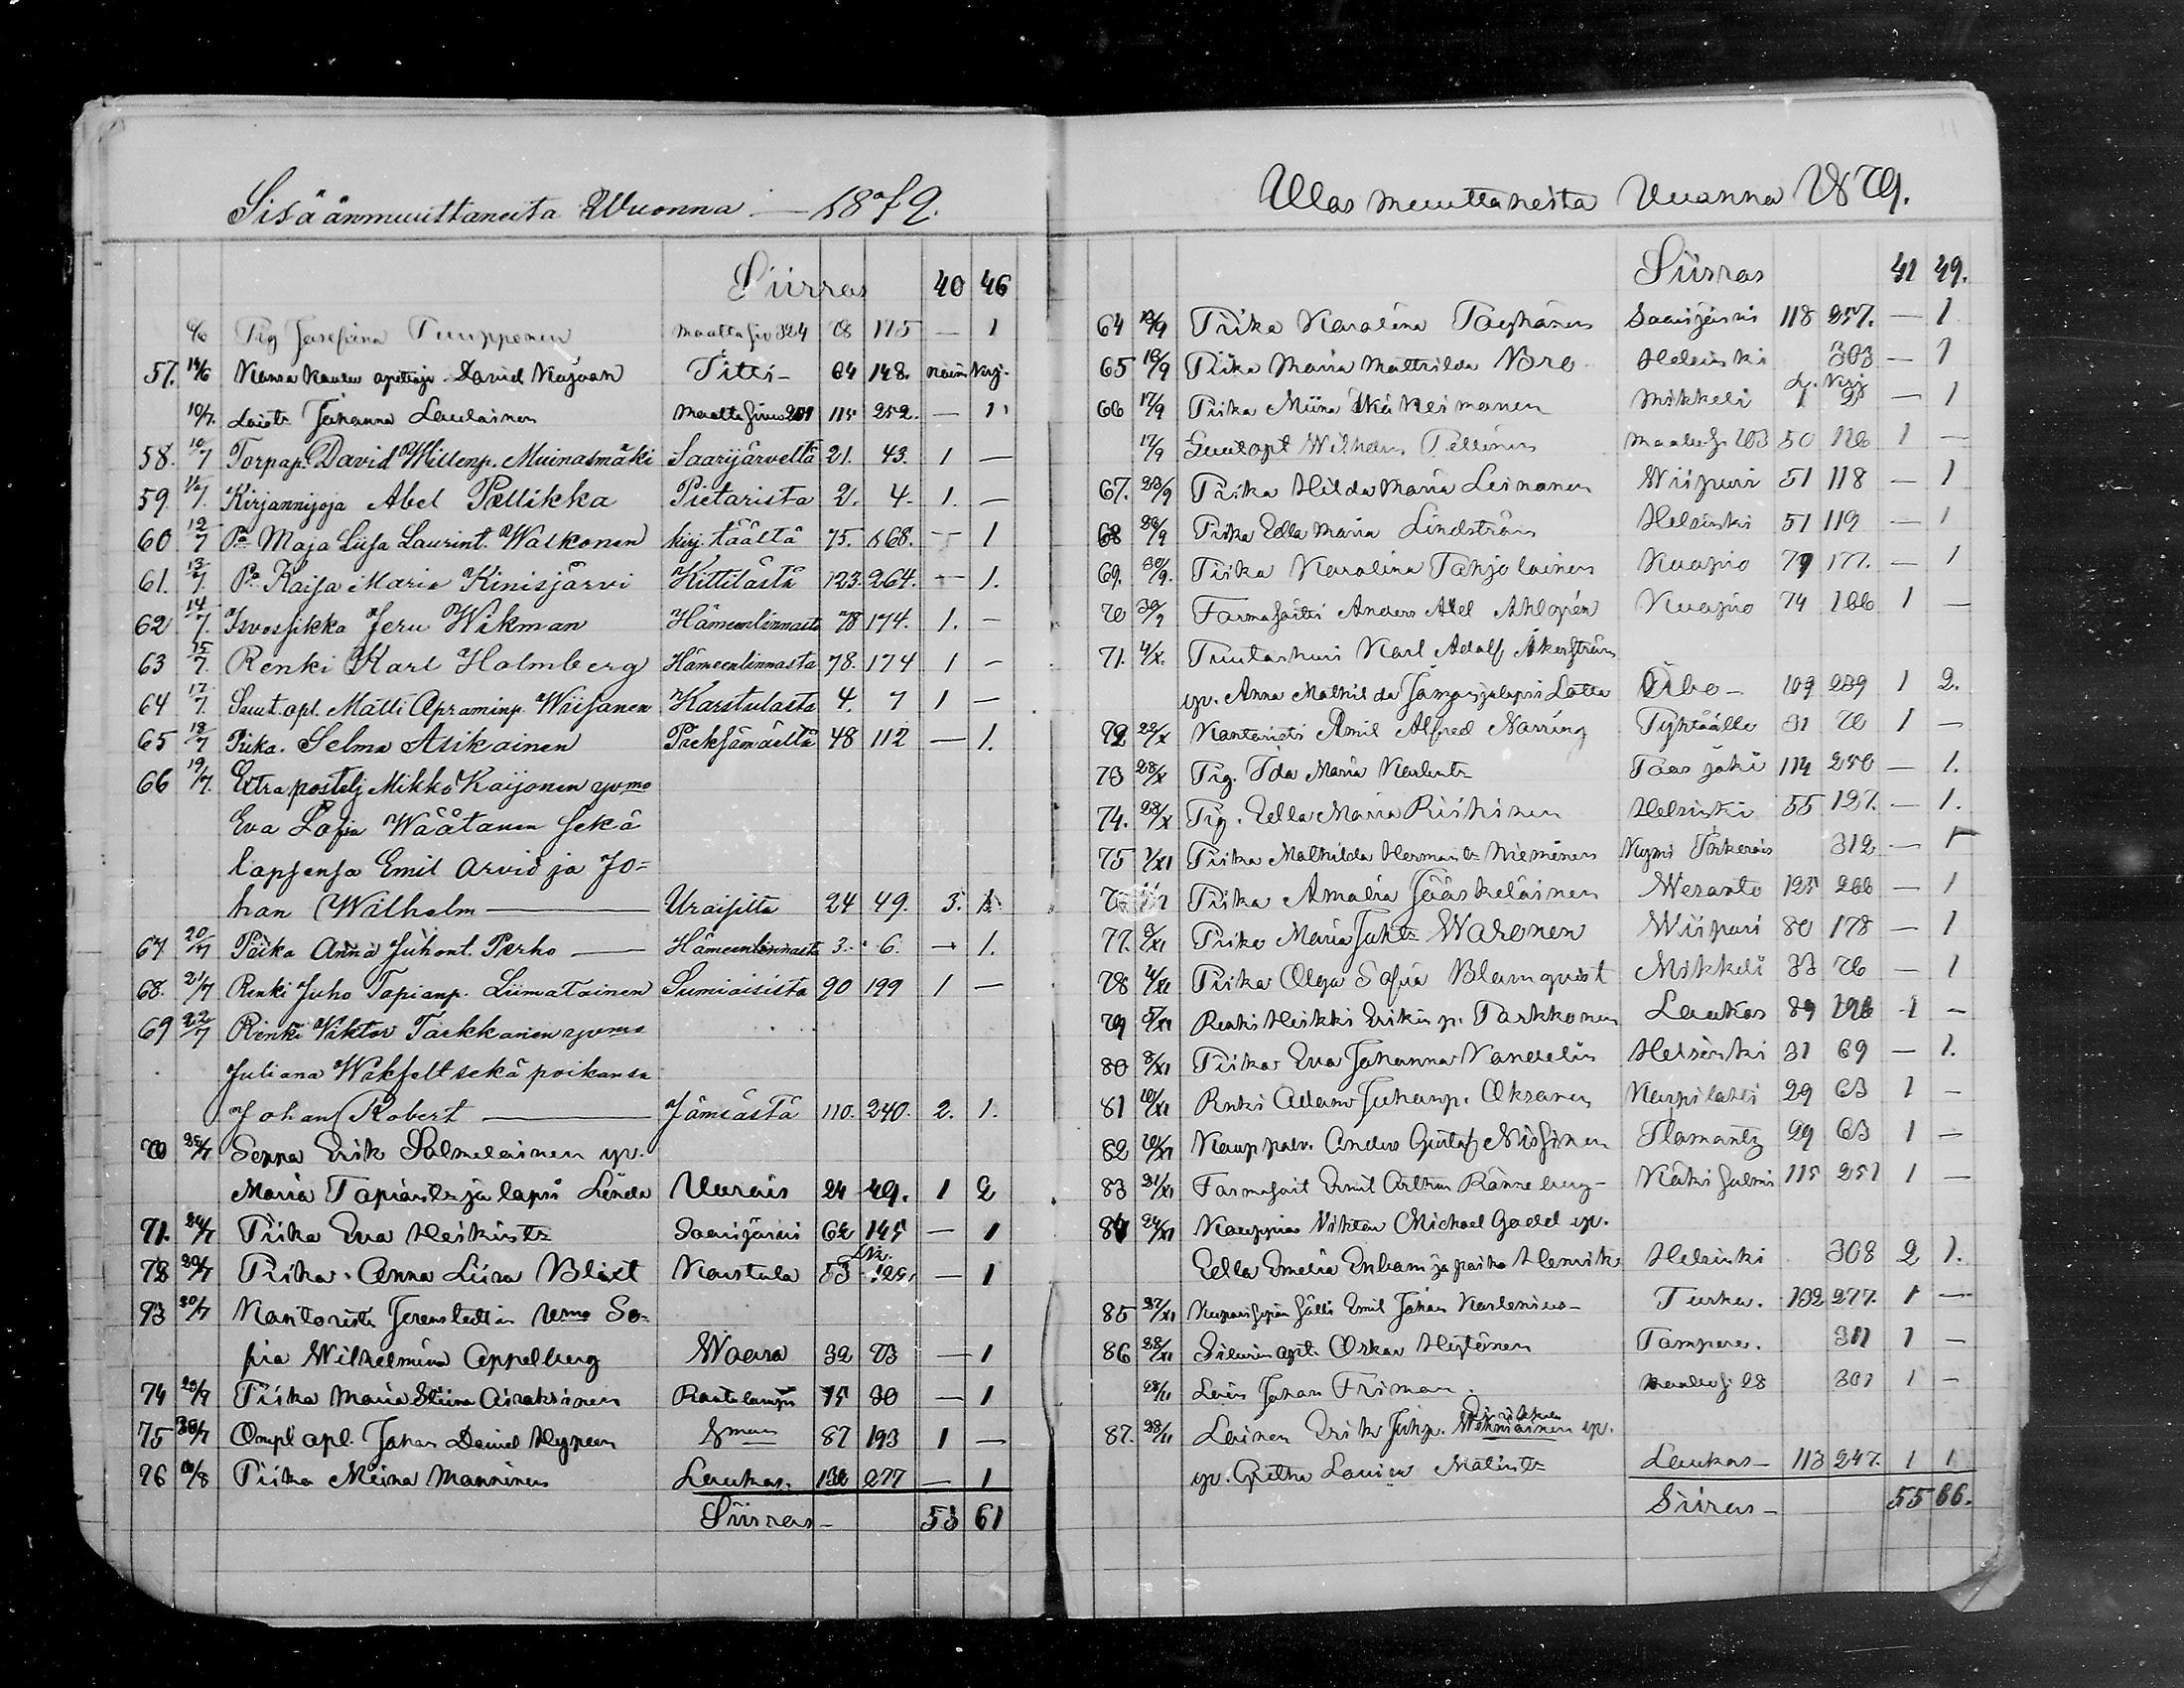 Sisäänmuuttaneita Wuonna — 1879.
Siirras 40 46
Pig Josefina Puupponen maalta siv 324 78 175 — 1
57. 14/6 Kansa Koulu opettaja David Kujaan Pitti- 64 148. Kirj.
10/7. Johanna Laulainen maalta 115 252. — 1
58. 10/7 Torpap. David Willenp. Muinasmäki Saarijärveltä 21. 43. 1 —
59. Kirjannijoja Abel Pallikka Pietarista 2. 4. 1. —
60 12/7 Pa Maja Liisa Laurint. Walkonen kirj. täältä 75. 168. — 1
61. 13/7. Pa Kaisa Maria Kinisjärvi Kittilästä 123. 264. — 1.
62 14/7. Isvossikka Jeru Wikman Hämeenlinnasta 78 174. 1. —
63 15/7. Renki Karl Holmberg Hämeenlinnasta 78. 174 1 —
64 17/7. Suut. opl. Matti Apraminp. Wiisanen Karstulasta 4. 7 1 —
65 18/7 Piika. Selma Asikainen Pieksämäeltä 48 112 — 1.
66 19/7. Extra postelj Mikko Kaijonen ja vmo
Eva Sofia Wäätanen sekä
lapsensa Emil Arvid ja Jo=
han Wilhelm — Uraisilta 24 49. 3. 1.
67 20/7 Piika Anna Juhont. Perho — Hämeenlinnasta 3. 6. — 1.
68. 21/7 Renki Juho Tapianp. Liimatainen Sumiaisista 90 199 1 —
69 22/7 Renki Viktor Taekkanen ja vmo
Juliana Wikfelt sekä poikansa
Johan Robert — Jämsästä 110. 240. 2. 1.
70 25/7 Seppa Erik Salmelainen yv.
Maria Tapiantr ja lapsi Linda Uurais 24 49. 1 2
71. 24/7 Piika Eva Heikintr Saarijärvi 62 145 — 1
72 29/7 Piika. Anna Liisa Blixt Karstula 53 125. — 1
73 30/7 Kantorista Jerenstedtin Vmo So=
fia Wilhelmina Appelberg Waasa 32 73 — 1
74 29/7 Piika Maria Stiina Airaksinen Rautalampi 15 30 — 1
75 30/7 Ompl opl. Johan Daniel Hypeen 87 193 1 —
76 Piika Miina Manninen Laukas. 132 277 — 1
Siirras — 53 61
Ulos muuttaneita Vuonna 1879.
Siirras 41 49.
64 12/9 Piika Karolina Pöyhönen Saarijärvi 118 257. — 1
65 16/9 Piika Maria Mathilda Bro Helsinki 303 — 1
66 17/9 Piika Miina Heimonen Mikkeli — 1
17/9 Suutopl Wilhelm Pellinen 50 116 1 —
67. 23/9 Piika Hilda Maria Leinonen Wiipuri 51 118 — 1
68 Piika Edla Maria Lindström Helsinki 51 119 — 1
69. 30/9. Piika Karolina Tahjolainen Kuopio 79 177. — 1
70 30/9 Farmasöitti Anders Axel Ahlgrén Kuopio 74 166 1 —
71. 4/X. Puutarhuri Karl Adolf Åkerström
yv. Anna Mathilda ja lapsi Lotta Åbo — 109 239 1 2.
72 22/X Kantoristi Amil Alfred Narring Pyhtäälle 31 70 1 —
73 28/X Pig. Ida Maria Karlintr Taas jäki 114 250 — 1.
74. 28/X Pig. Edla Maria Riihinen Helsinki 55 127. — 1.
75 1/XI Piika Mathilda Hermantr Nieminen Kymi 312 — 1
Piika Amalia Jääskeläinen Wesanto 125 266 — 1
77. Piika Maria Juhtr Waronen Wiipuri 80 178 — 1
78 4/XI Piika Olga Sofia Blomqvist Mikkeli 33 76 — 1
79 5/XI Renki Heikki Erikin p. Parkkonen Laukas 89 196 1 —
80 8/XI Piika Eva Johanna Vandelin Helsinki 31 69 — 1.
81 10/XI Renki Adam Juhanp. Oksanen Karpilahti 29 63 1 —
82 20/XI Kauppalv. Anders Gustaf Nissinen Ilamants 29 63 1 —
83 21/XI Farmasöit Emil Arthur Ränneberg — Käkisalmi 115 251 1 —
84 24/XI Kauppias Viktor Michael Gadd yv.
Edla Emelia Enbom ja poika Henrik Helsinki 308 2 1.
85 27/XI Kuparisepän sälli Emil Johan Karlenius — Turku. 132 277. 1 —
86 28/XI opl. Oskar Hytönen Tampere. 311 1 —
28/11 Johan Friman. 301 1 —
87. 28/11 Loinen Erik Juhp. yv.
yv. Gretha Lovisa Matintr Laukas — 113 247. 1 1
Siiras — 55 66.